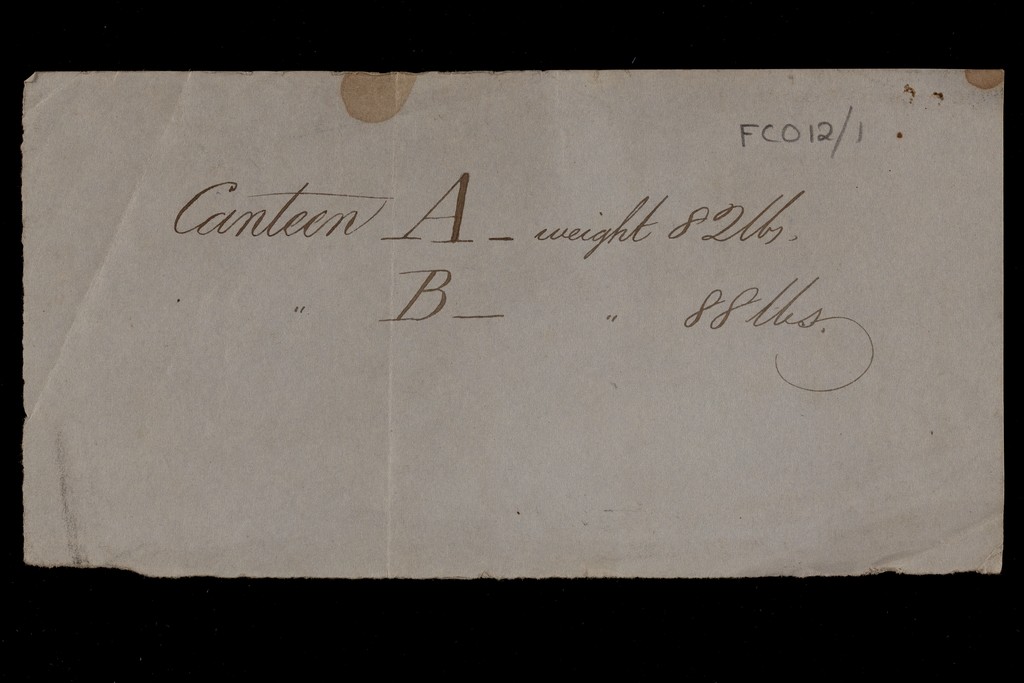 FC012/1
Canteen A - weight 82 lbs.
" B - " 88 lbs.